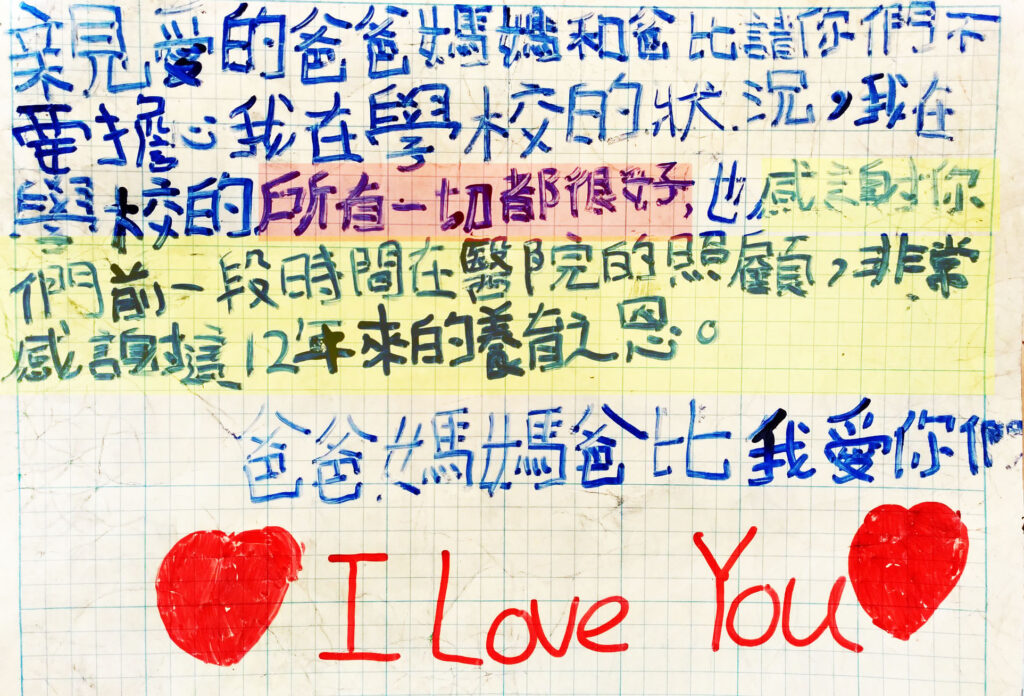 親愛的爸爸媽媽和爸比請你們不
要擔心我在學校的狀況,我在
學校的所有一切都很好,也感謝你
們前一段時間在醫院的照顧,非常
感謝這12年來的養育之恩。
爸爸媽媽爸比我愛你們
I Love You